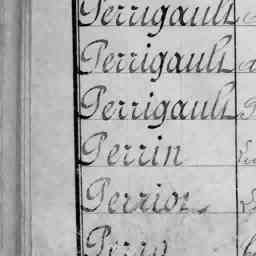 Perrigault
Perrigault
Perrigault
Perrin
Perrior
Perry